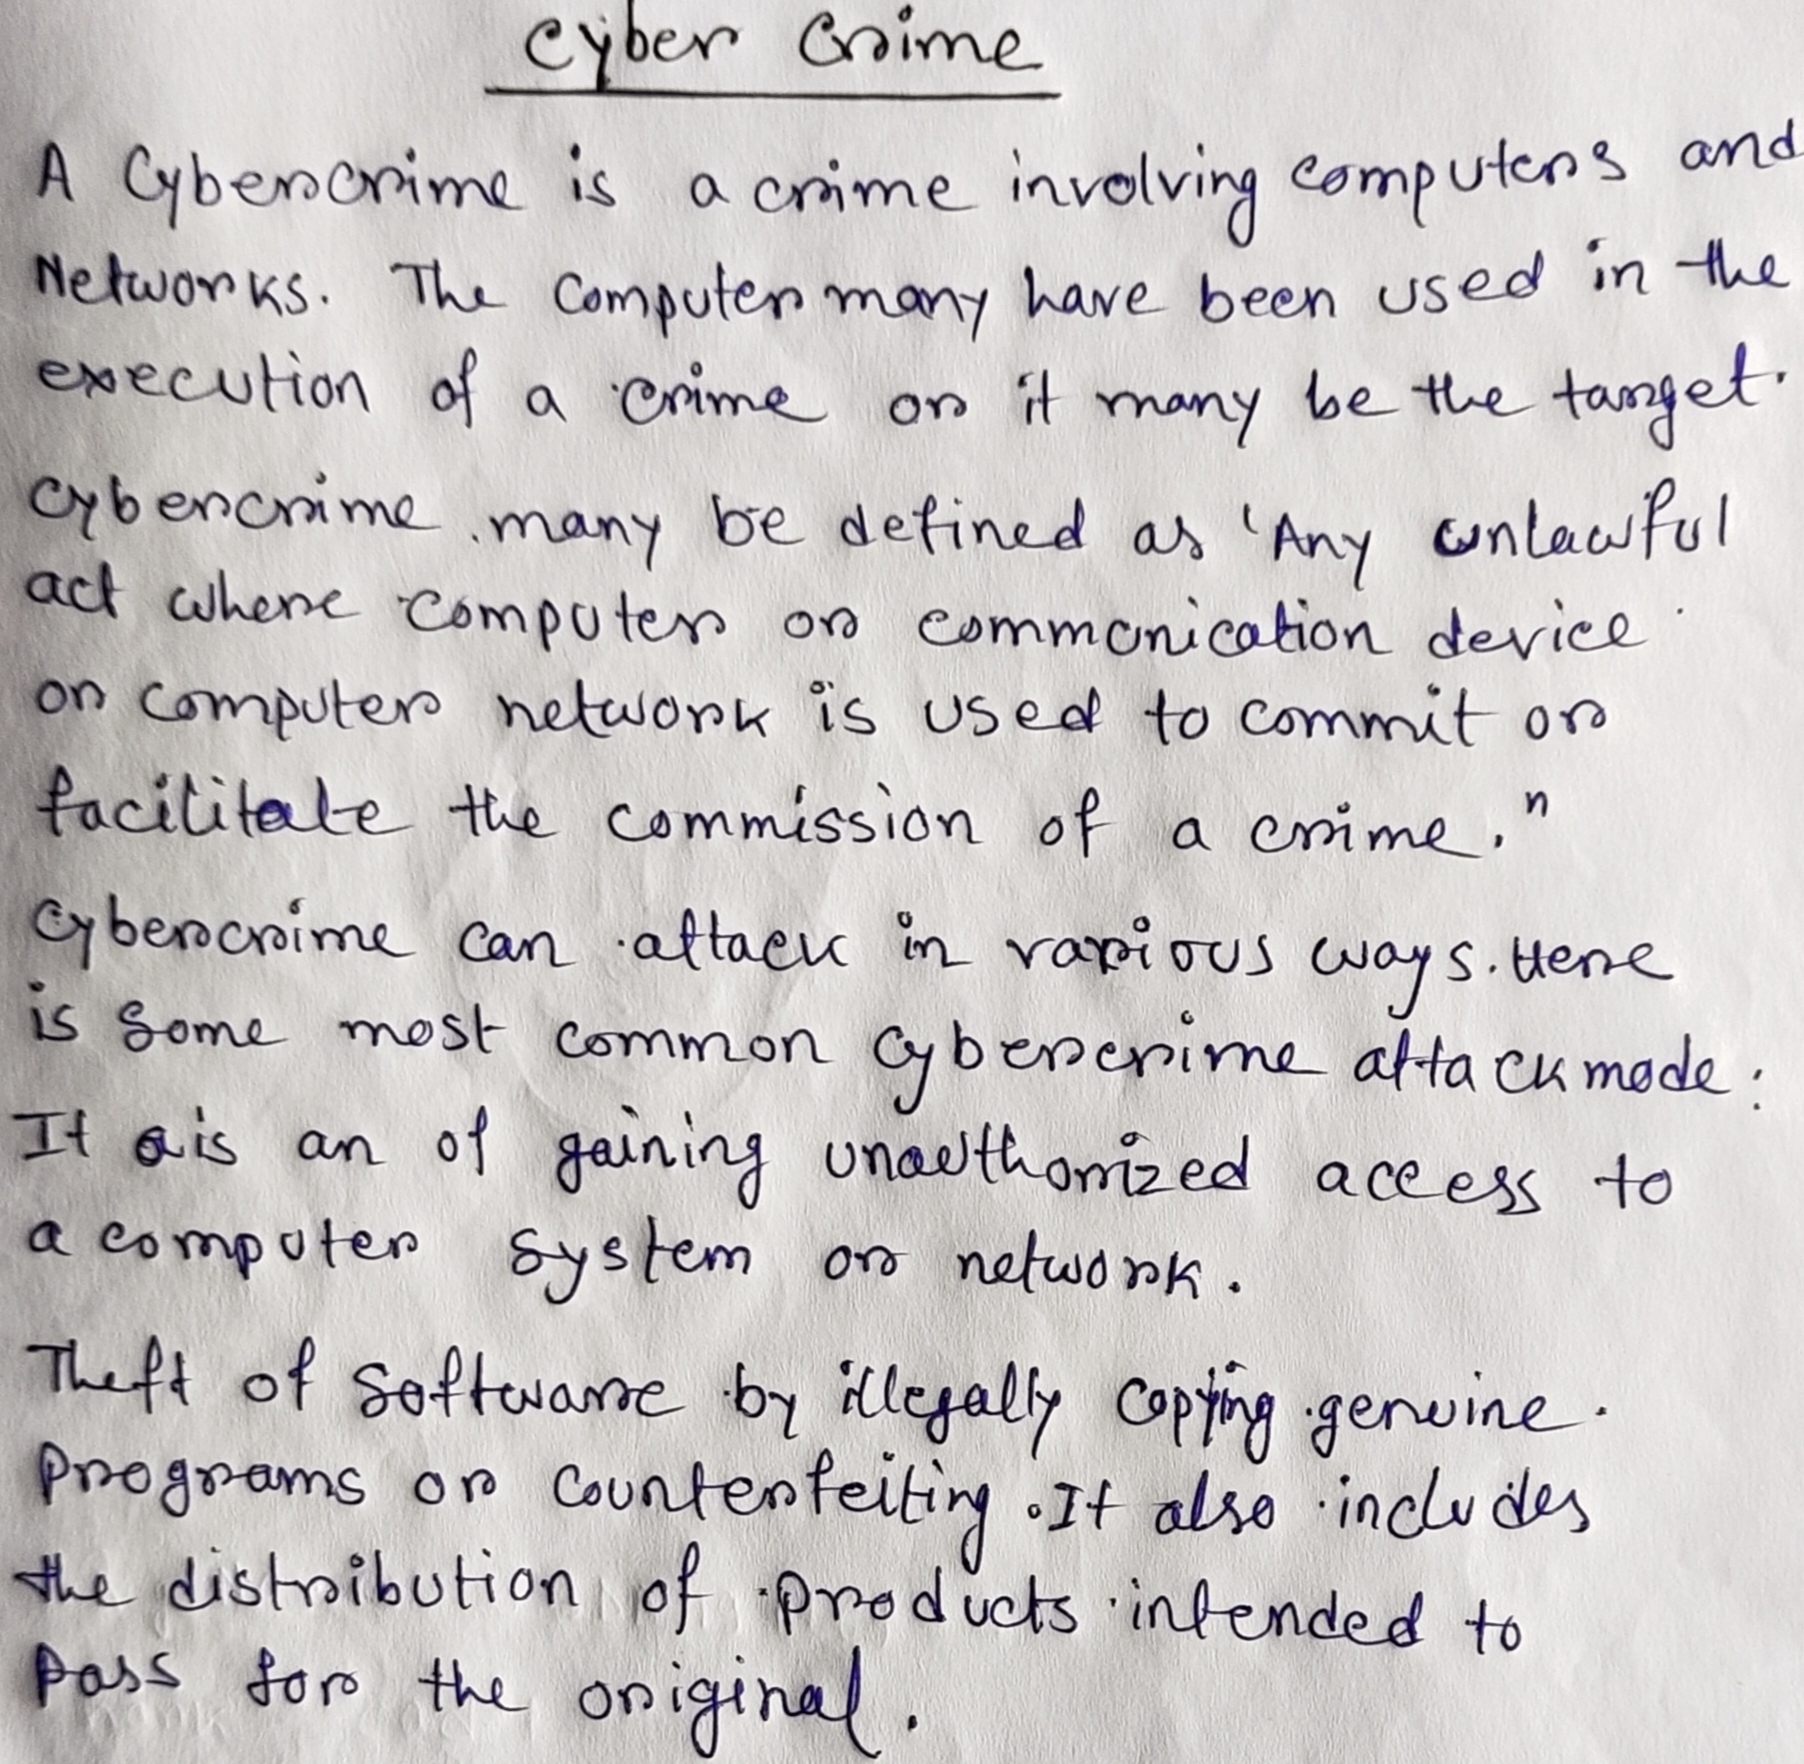 Cyber Crime
A Cybercrime is a crime involving computers and
Networks. The Computer many have been used in the
execution of a crime or it many be the target.
Cybercrime many be defined as 'Any unlawful
act where computer or communication device
or computer network is used to commit or
facilitate the commission of a crime."
Cybercrime can attack in various ways. Here
is some most common cybercrime attack mode:
It is an of gaining unauthorized access to
a computer system or network.
Theft of Software by illegally copying genuine
Programs or counterfeiting. It also includes
the distribution of products intended to
pass for the original.